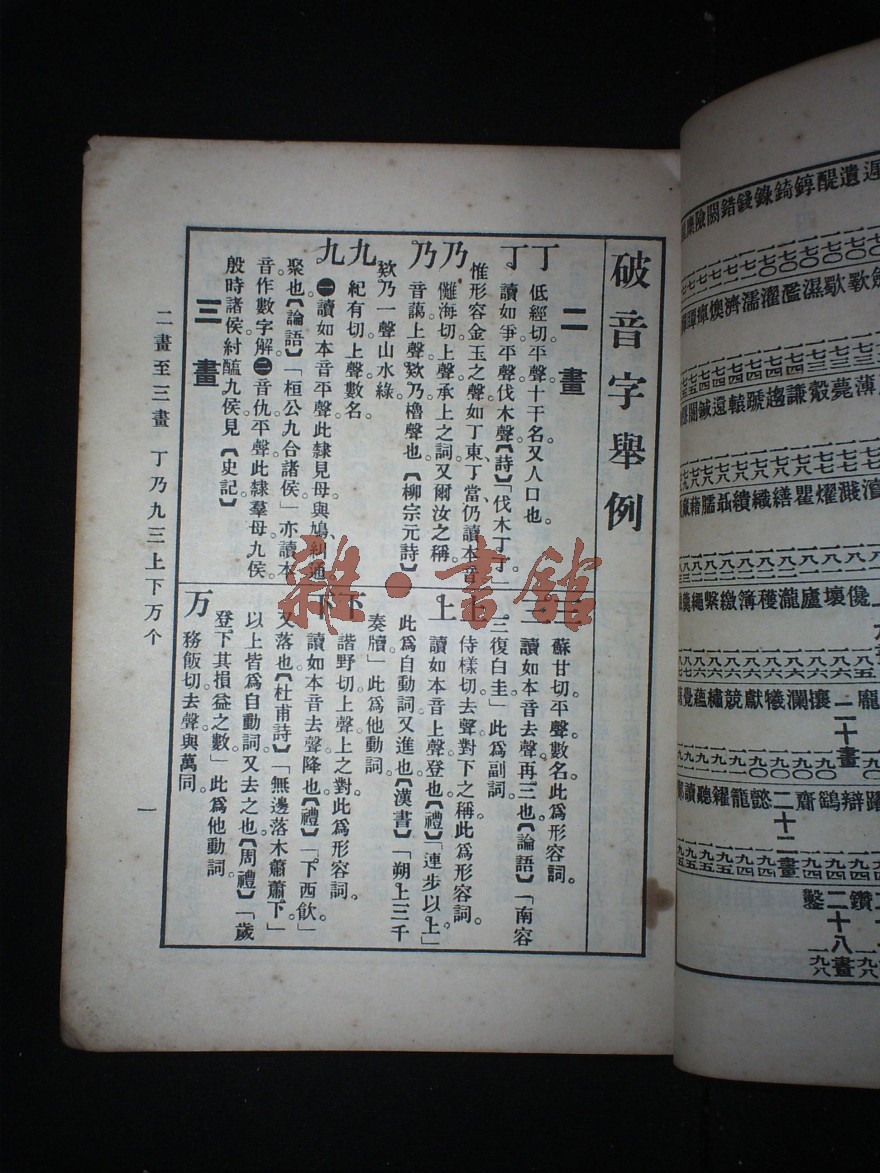 破音字舉例
二畫
丁 低經切。平聲。十干名。又人口也。
丁 讀如爭。平聲。伐木聲。【詩】「伐木丁丁」
惟形容金玉之聲。如丁東、丁當、仍讀本音
乃 儺海切。上聲。承上之詞。又爾汝之稱。
乃 音藹。上聲。欸乃。櫓聲也。【柳宗元詩】
欸乃一聲山水綠
九 紀有切。上聲。數名。
九 ㊀讀如本音。平聲。此隸見母。與鳩、糾通。
聚也。【論語】「桓公九合諸侯」亦讀本
音作數字解。㊁音仇。平聲。此隸羣母。九侯。
殷時諸侯。紂醢九侯。見【史記】
三畫
三 蘇甘切。平聲。數名。此爲形容詞。
三 讀如本音。去聲。再三也。【論語】「南容
三復白圭。」此爲副詞。
上 侍樣切。去聲。對下之稱。此爲形容詞。
上 讀如本音。上聲。登也。【禮】「連步以上」
此爲自動詞。又進也。【漢書】「朔上三千
奏牘」此爲他動詞。
下 諧野切。上聲。上之對。此爲形容詞。
下 讀如本音。去聲。降也。【禮】「下西飲」
又落也。【杜甫詩】「無邊落木蕭蕭下。」
以上皆爲自動詞。又去之也。【周禮】「歲
登下其損益之數」此爲他動詞。
万 務飯切。去聲。與萬同。
二畫至三畫 丁乃九三上下万个
一
雜·書館
遲遺醍錞錡錄錢錯闊險
歌歔濕濫濯濡濟燠瘴
薄薨縠謙趨號轅還鍼闇
濺燿瞿繕織繢聶臑藉
儳壞廬瀧穫簿繳繫繩
龐 二十畫 壤瀾犧獻競繡蘊覺
躍辯鷂齋 二十二畫 懿龍糴聽讀
鑽 二十八畫 鑿